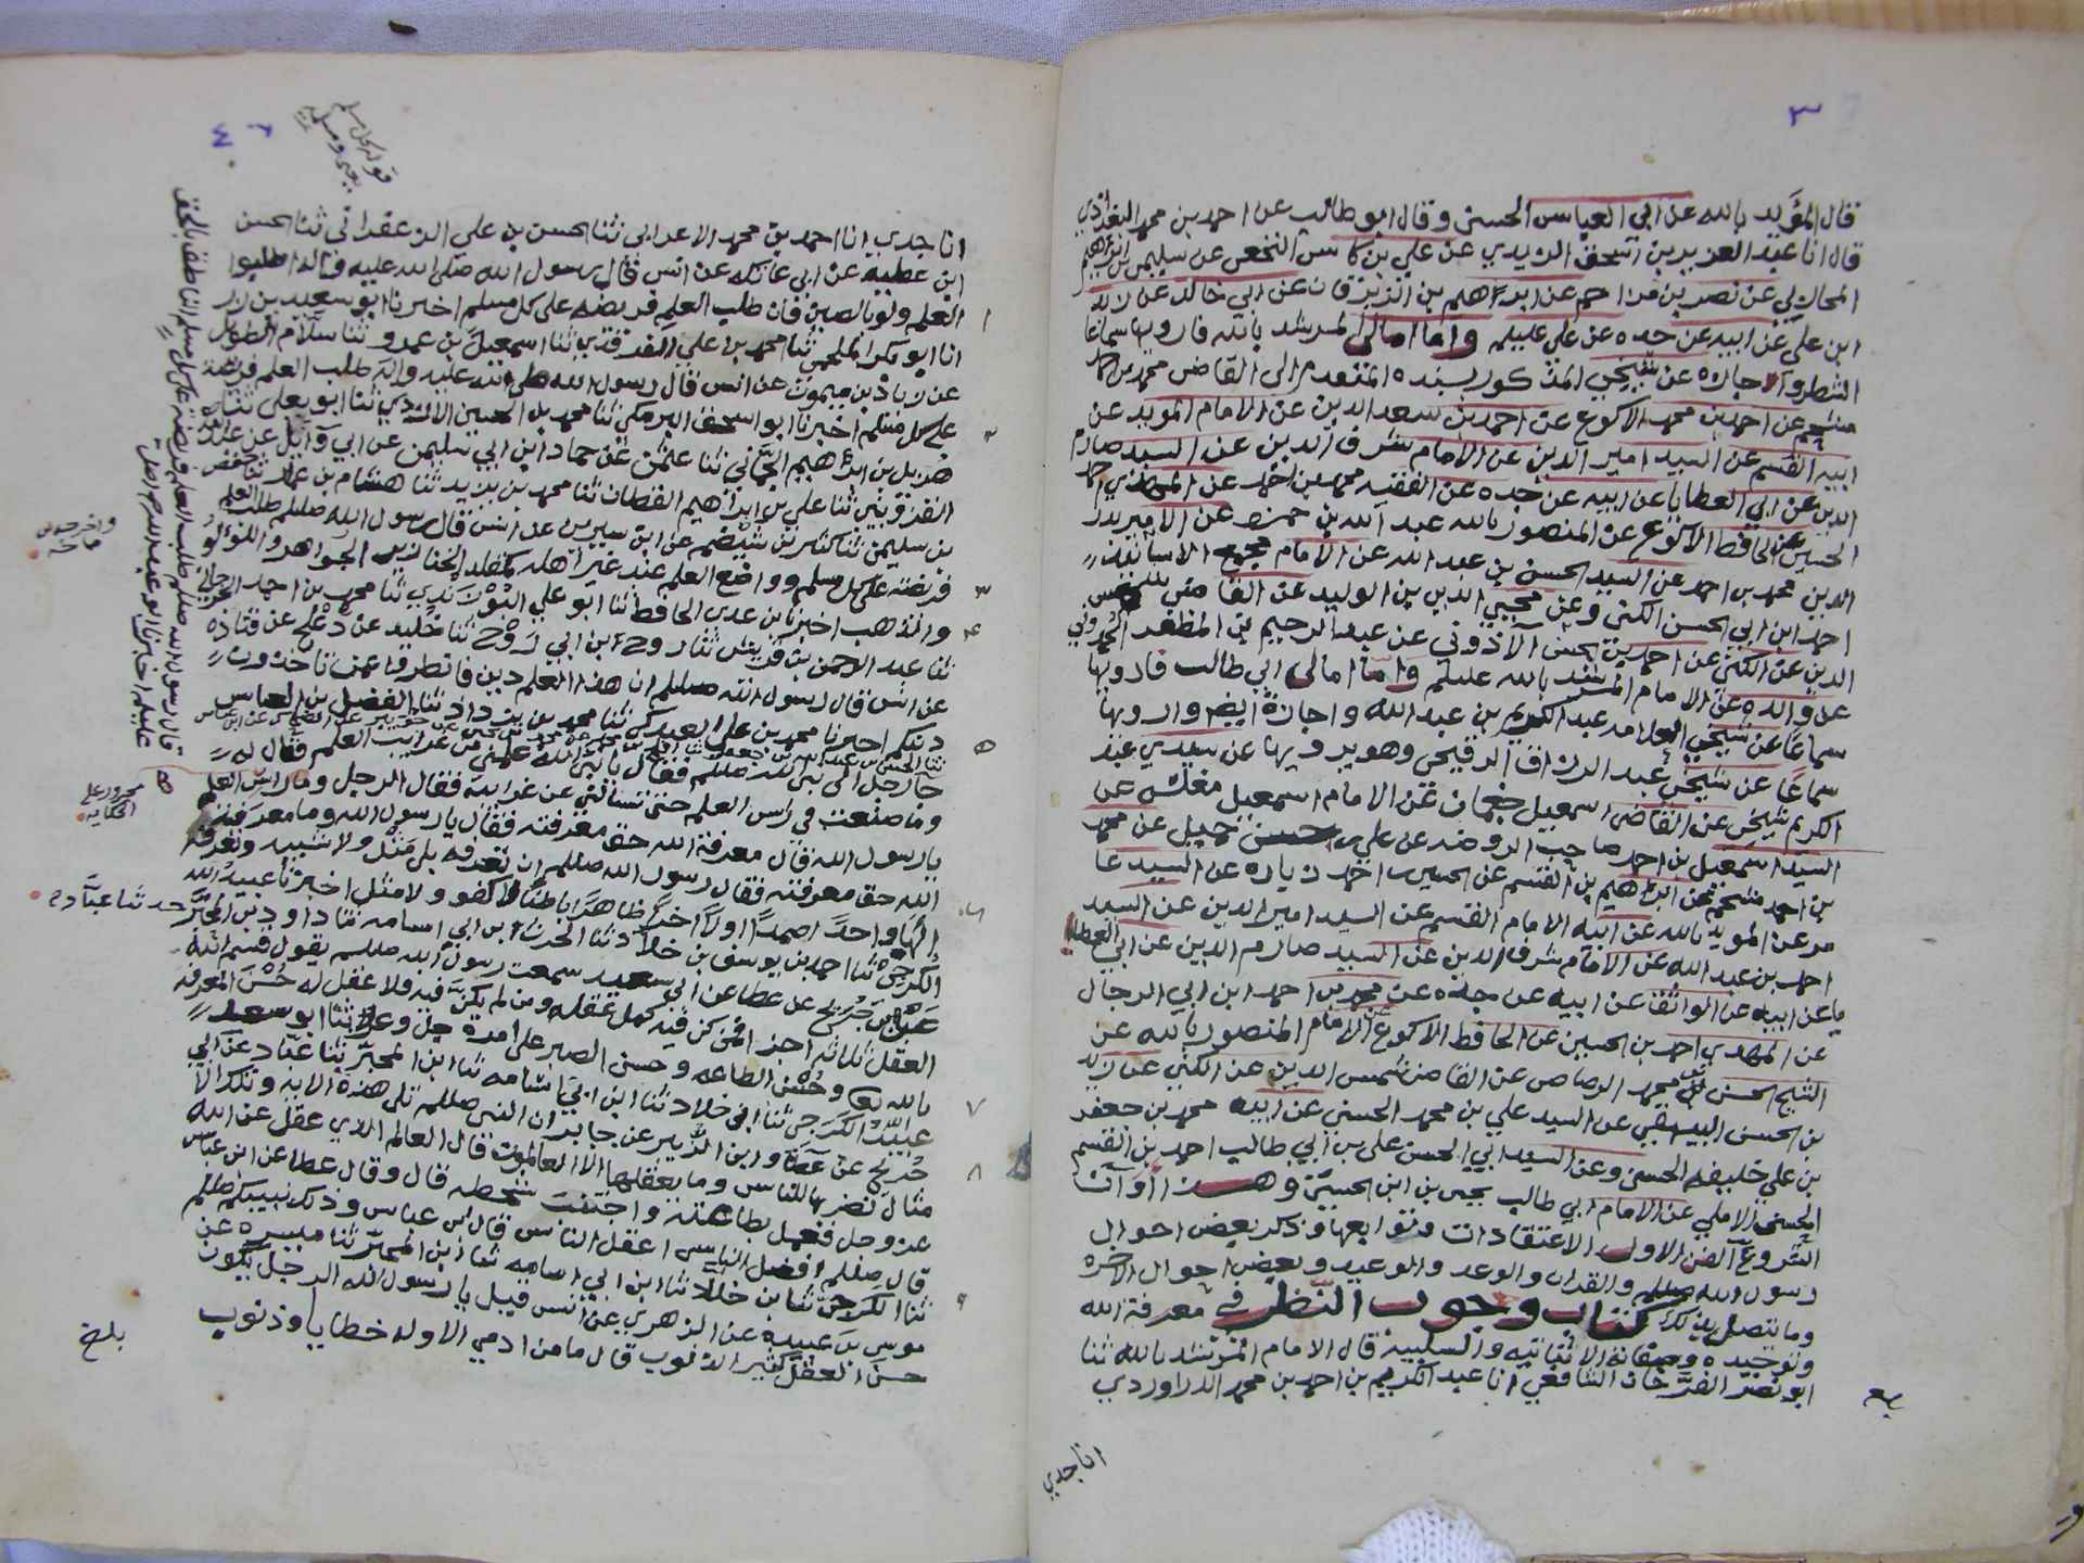 ٣
قال المؤيد بالله عن ابي العباس الحسني وقال ابو طالب عن احمد بن محمد البغدادي
قال انا عبد العزيز بن اسحق الزيدي عن علي بن كاس النخعي عن سليمن بن ابرهيم
المحاربي عن نصر بن مزاحم عن ابرهيم بن الزبرقان عن ابي خالد عن زيد
ابن علي عن ابيه عن جده عن علي عليلم واما امالي المرشد بالله فارويها سماعا
الشطر واجازه عن شيخي المذكور بسنده المتقدم الى القاضي محمد بن احمد
مشحم عن احمد بن محمد الاكوع عن احمد بن سعد الدين عن الامام المويد عن
ابيه القسم عن السيد امير الدين عن الامام شرف الدين عن السيد صارم
الدين عن ابي العطايا عن ابيه عن جده عن الفقيه محمد بن احمد عن المهدي
الحسين عن الحافظ الاكوع عن المنصور بالله عبد الله بن حمزه عن الامير بدر
الدين محمد بن احمد عن السيد الحسن بن عبد الله عن الامام
احمد ابن ابي الحسن الكني وعن محيي الدين بن الوليد عن القاضي شمس
الدين عن الكني عن احمد بن الحسن الاذوني عن عبد الرحيم بن المظفر الحمدوني
عن والده عن الامام المرشد بالله عليلم واما امالي ابي طالب فارويها
سماعًا عن شيخي العلامه عبد الكريم بن عبد الله واجازة ايضا وارويها
سماعًا عن شيخي عبد الرزاق الرقيحي وهو يرويها عن سيدي عبد
الكريم شيخي عن القاضي اسمعيل جغمان عن الامام اسمعيل مغلس عن
السيد اسمعيل بن احمد صاحب الروضه عن علي حسن جميل عن محمد
بن احمد مشحم عن ابرهيم بن القسم عن الحسين بن احمد زباره عن السيد عا
مر عن المويد بالله عن ابيه الامام القسم عن السيد امير الدين عن السيد
احمد بن عبد الله عن الامام شرف الدين عن السيد صارم الدين عن ابي العطا
يا عن ابيه عن الواثق عن ابيه عن جده عن محمد بن احمد ابن ابي الرجال
عن المهدي احمد بن الحسين عن الحافظ الاكوع عن الامام المنصور بالله عن
الشيخ الحسن بن محمد الرصاص عن القاضي شمس الدين عن الكني عن زيد
بن الحسن البيهقي عن السيد علي بن محمد الحسني عن ابيه محمد بن جعفر
بن علي خليفه الحسني وعن السيد ابي الحسن علي بن ابي طالب احمد بن القسم
الحسني الاملي عن الامام ابي طالب يحيى بن الحسين وهـذا أوآن
الشروع الفن الاول الاعتقادات وتوابعها وذكر بعض احوال
رسول الله صللم والقران والوعد والوعيد وبعض احوال الاخره
وما يتصل بذلك كتاب وجوب النظر في معرفة الله
وتوحيده وصفاته الاثباتيه والسلبيه قال الامام المرشد بالله ثنا
ابو نصر الفرخان الشافعي انا عبد الكريم بن احمد بن محمد الدراوردي
انا جدي
٤
انا جدي انا احمد بن محمد الاعرابي ثنا الحسن بن علي الزعفراني ثنا الحسن
ابن عطيه عن ابي عاتكه عن انس قال رسول الله صلى الله عليه واله اطلبوا
العلم ولو بالصين فان طلب العلم فريضه على كل مسلم اخبرنا ابو سعيد
انا ابو بكر الملحمي ثنا محمد بن علي الفرقدي ثنا اسمعيل بن عمرو ثنا سلام الطويل
عن زياد بن ميمون عن انس قال رسول الله صلى الله عليه واله طلب العلم فريضة
على كل مسلم اخبرنا ابو اسحق البرمكي ثنا محمد بن الحسين الازدي ثنا ابو يعلى ثنا
هذيل بن ابرهيم الحماني ثنا عثمن عن حماد ابن ابي سليمن عن ابي وايل عن عبد الله
القزويني ثنا علي بن ابرهيم القطان ثنا محمد بن يزيد ثنا هشام بن عمار ثنا حفص
بن سليمن ثنا كثير بن شنظير عن ابن سيرين عن انس قال رسول الله صللم طلب العلم
فريضة على كل مسلم وواضع العلم عند غير اهله كمقلد الخنازير الجواهر واللؤلؤ
والذهب اخبرنا بن عدي الحافظ ثنا ابو علي ثنا محمد بن احمد
ثنا عبد الرحمن بن قريش ثنا روح ابن ابي رَوْح ثنا خليد عن دعلج عن قتاده
عن انس قال رسول الله صللم ان هذا العلم دين فانظروا عمن تاخذون
دينكم اخبرنا محمد بن علي العبدكي ثنا محمد بن يزداد ثنا الفضل بن العباس
جا رجل الى نبي الله صللم فقال يا نبي الله علمني من غرايب العلم فقال له
وما صنعت في راس العلم حتى تسألني عن غرايبه فقال الرجل وما راس العلم
يا رسول الله قال معرفة الله حق معرفته فقال يا رسول الله وما معرفة
الله حق معرفته فقال رسول الله صللم ان تعرفه بلا مثل ولا شبيه وتعرفه
الهًا واحدًا صمدًا اولًا اخرًا ظاهرًا باطنًا لا كفو ولا مثل اخبرنا عبيد الله
الكرجي ثنا احمد بن يوسف بن خلاد ثنا الحرث ابن ابي اسامه ثنا داود بن المحبر حدثنا عباد
عن بن جريج عن عطا عن ابي سعيد سمعت رسول الله صللم يقول قسم الله
العقل ثلاثه اجزا فمن كن فيه كمل عقله ومن لم يكن فيه فلا عقل له حُسْن المعرفه
بالله وحُسْن الطاعه وحسن الصبر على امره جل وعلا ثنا ابو سعد
عبيد الكرجي ثنا ابن خلاد ثنا ابن ابي اسامه ثنا ابن المحبر ثنا عبّاد عن ابن
جُريج عن عَطا وابن الزبير عن جابر ان النبي صللم تلى هذه الايه وتلك الا
مثال نضربها للناس وما يعقلها الا العالمون قال العالم الذي عقل عن الله
عز وجل فعمل بطاعته واجتنب سخطه قال وقال عطا عن ابن عباس
قال صللم افضل الناس اعقل الناس قال ابن عباس وذلك نبييكم صللم
ثنا الكرجي ثنا بن خلاد ثنا ابن ابي اسامه ثنا ابن المحبر ثنا ميسره عن
موسى بن عبيده عن الزهري عن انس قيل يا رسول الله الرجل يكون
حسن العقل كثير الذنوب قال ما من ادمي الا وله خطايا وذنوب
قال رسول الله صللم طلب العلم فريضة على كل مسلم الناطق بالحق
بلغ